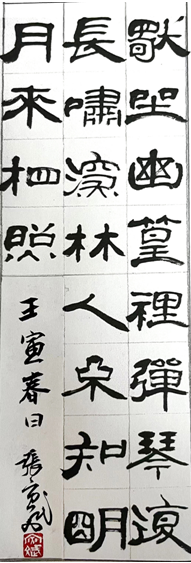 獨坐幽篁裡彈琴復
長嘯深林人不知明
月來相照
壬寅春日 張